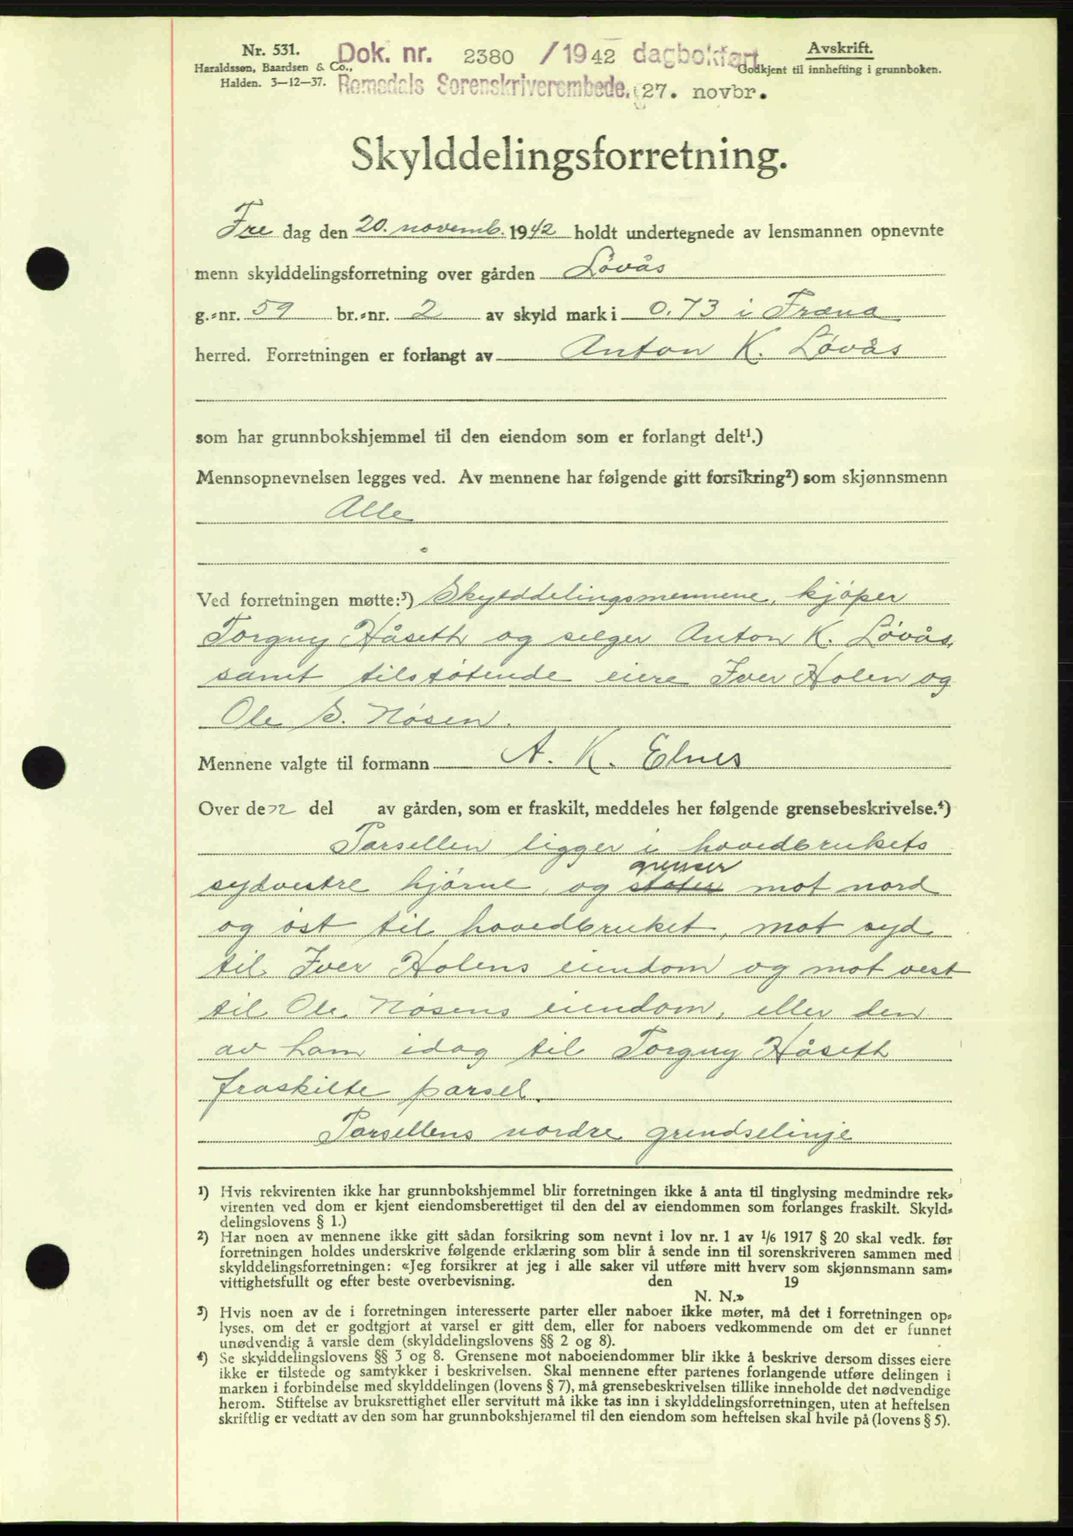 Nr. 531.
Haraldssøn, Baardsen & Co.,
Halden. 3—12—37.
Dok. nr. 2380 /1942 dagbokført
Romsdals Sorenskriverembede. 27. novbr.
Avskrift.
Godkjent til innhefting i grunnboken.
Skylddelingsforretning.
Fre dag den 20. novemb. 1942 holdt undertegnede av lensmannen opnevnte
menn skylddelingsforretning over gården Lövås
g.-nr. 59 br.-nr. 2 av skyld mark i 0.73 i Fræna
herred. Forretningen er forlangt av Anton K. Lövås
som har grunnbokshjemmel til den eiendom som er forlangt delt¹.)
Mennsopnevnelsen legges ved. Av mennene har følgende gitt forsikring²) som skjønnsmenn
Alle
Ved forretningen møtte:³) Skylddelingsmennene, kjöper
Torguy Håseth og selger Anton K. Lövås,
samt tilstötende eiere Iver Holen og
Ole S. Nösen.
Mennene valgte til formann A. K. Elnes
Over den del av gården, som er fraskilt, meddeles her følgende grensebeskrivelse.⁴)
Parsellen ligger i hovedbrukets
grenser
sydvestre hjörne, og støter mot nord
og öst til hovedbruket, mot syd
til Iver Holens eiendom og mot vest
til Ole Nösens eiendom, eller den
av ham idag til Torguy Håseth
fraskilte parsel.
Parsellens nordre grendselinje
¹) Hvis rekvirenten ikke har grunnbokshjemmel blir forretningen ikke å anta til tinglysing medmindre rek-
virenten ved dom er kjent eiendomsberettiget til den del av eiendommen som forlanges fraskilt. Skyld-
delingslovens § 1.)
²) Har noen av mennene ikke gitt sådan forsikring som nevnt i lov nr. 1 av 1/6 1917 § 20 skal vedk. før
forretningen holdes underskrive følgende erklæring som blir å sende inn til sorenskriveren sammen med
skylddelingsforretningen: «Jeg forsikrer at jeg i alle saker vil utføre mitt hverv som skjønnsmann sam-
vittighetsfullt og efter beste overbevisning. den 19
N. N.»
³) Hvis noen av de i forretningen interesserte parter eller naboer ikke møter, må det i forretningen op-
lyses, om det er godtgjort at varsel er gitt dem, eller for naboers vedkommende om det er funnet
unødvendig å varsle dem (skylddelingslovens §§ 2 og 8).
⁴) Se skylddelingslovens §§ 3 og 8. Grensene mot naboeiendommer blir ikke å beskrive dersom disses eiere
ikke er tilstede og samtykker i beskrivelsen. Skal mennene efter partenes forlangende utføre delingen i
marken i forbindelse med skylddelingen (lovens § 7), må grensebeskrivelsen tillike inneholde det nødvendige
herom. Stiftelse av bruksrettighet eller servitutt må ikke tas inn i skylddelingsforretningen, uten at heftelsen
skriftlig er vedtatt av den som har grunnbokshjemmel til den eiendom som heftelsen skal hvile på (lovens § 5).